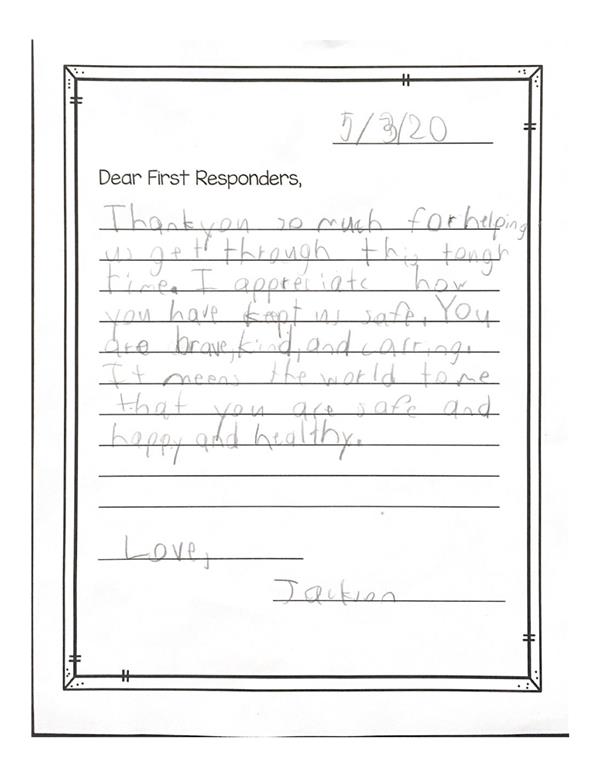 5/3/20
Dear First Responders,
Thankyou so much for helping
us get through this tough
time. I appreciate how
you have kept us safe. You
are brave, kind, and carring.
It means the world to me
that you are safe and
happy and healthy.
Love,
Jackson